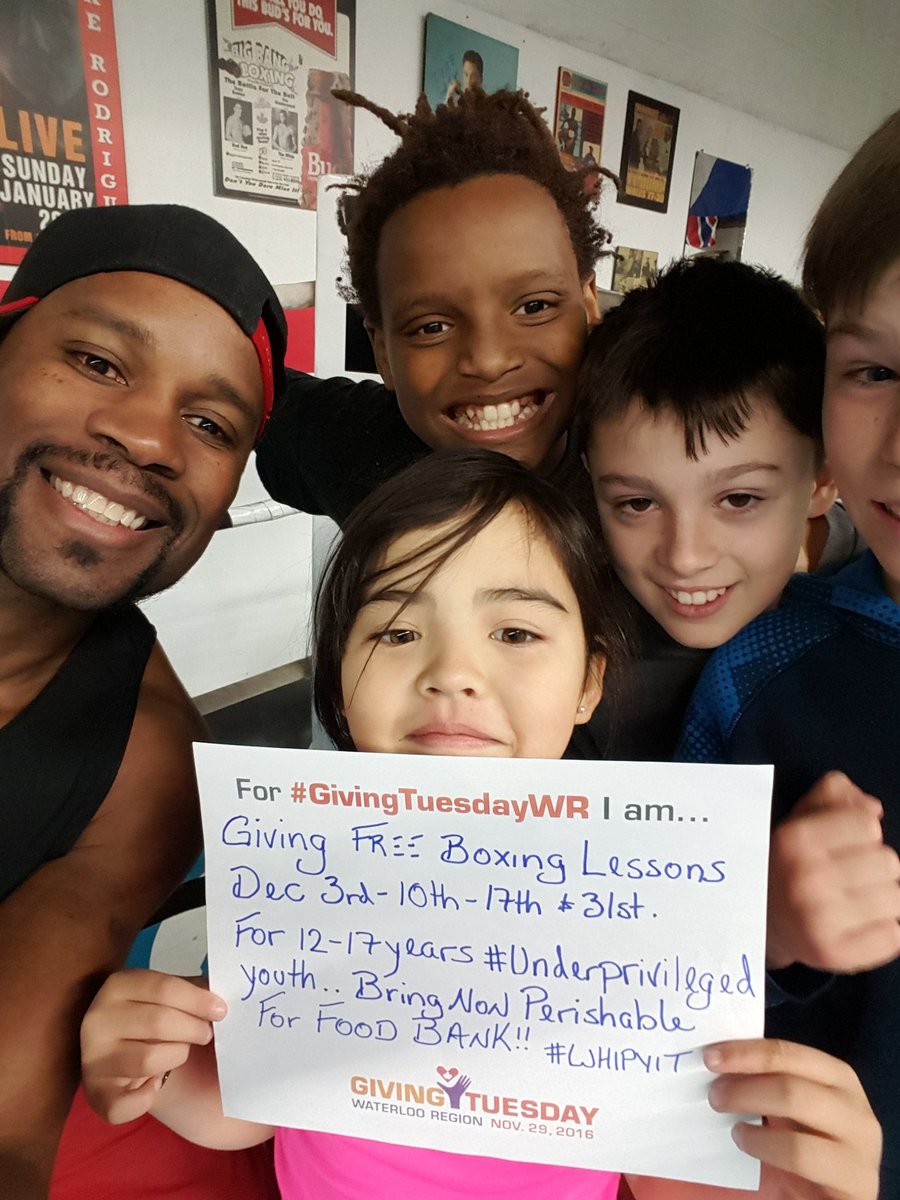 KE RODRIGU
LIVE
SUNDAY
JANUARY
FROM
YOU DO
THIS BUD'S FOR YOU.
BIG BANG
BOXING
The Battle For The Belt
Don't You Dare Miss It!
Bu
For #GivingTuesdayWR I am...
Giving FREE Boxing Lessons
Dec 3rd-10th-17th & 31st.
For 12-17years #Underprivileged
youth.. Bring Non Perishable
For FOOD BANK!! #WHIPYIT
GIVING TUESDAY
WATERLOO REGION NOV. 29, 2016